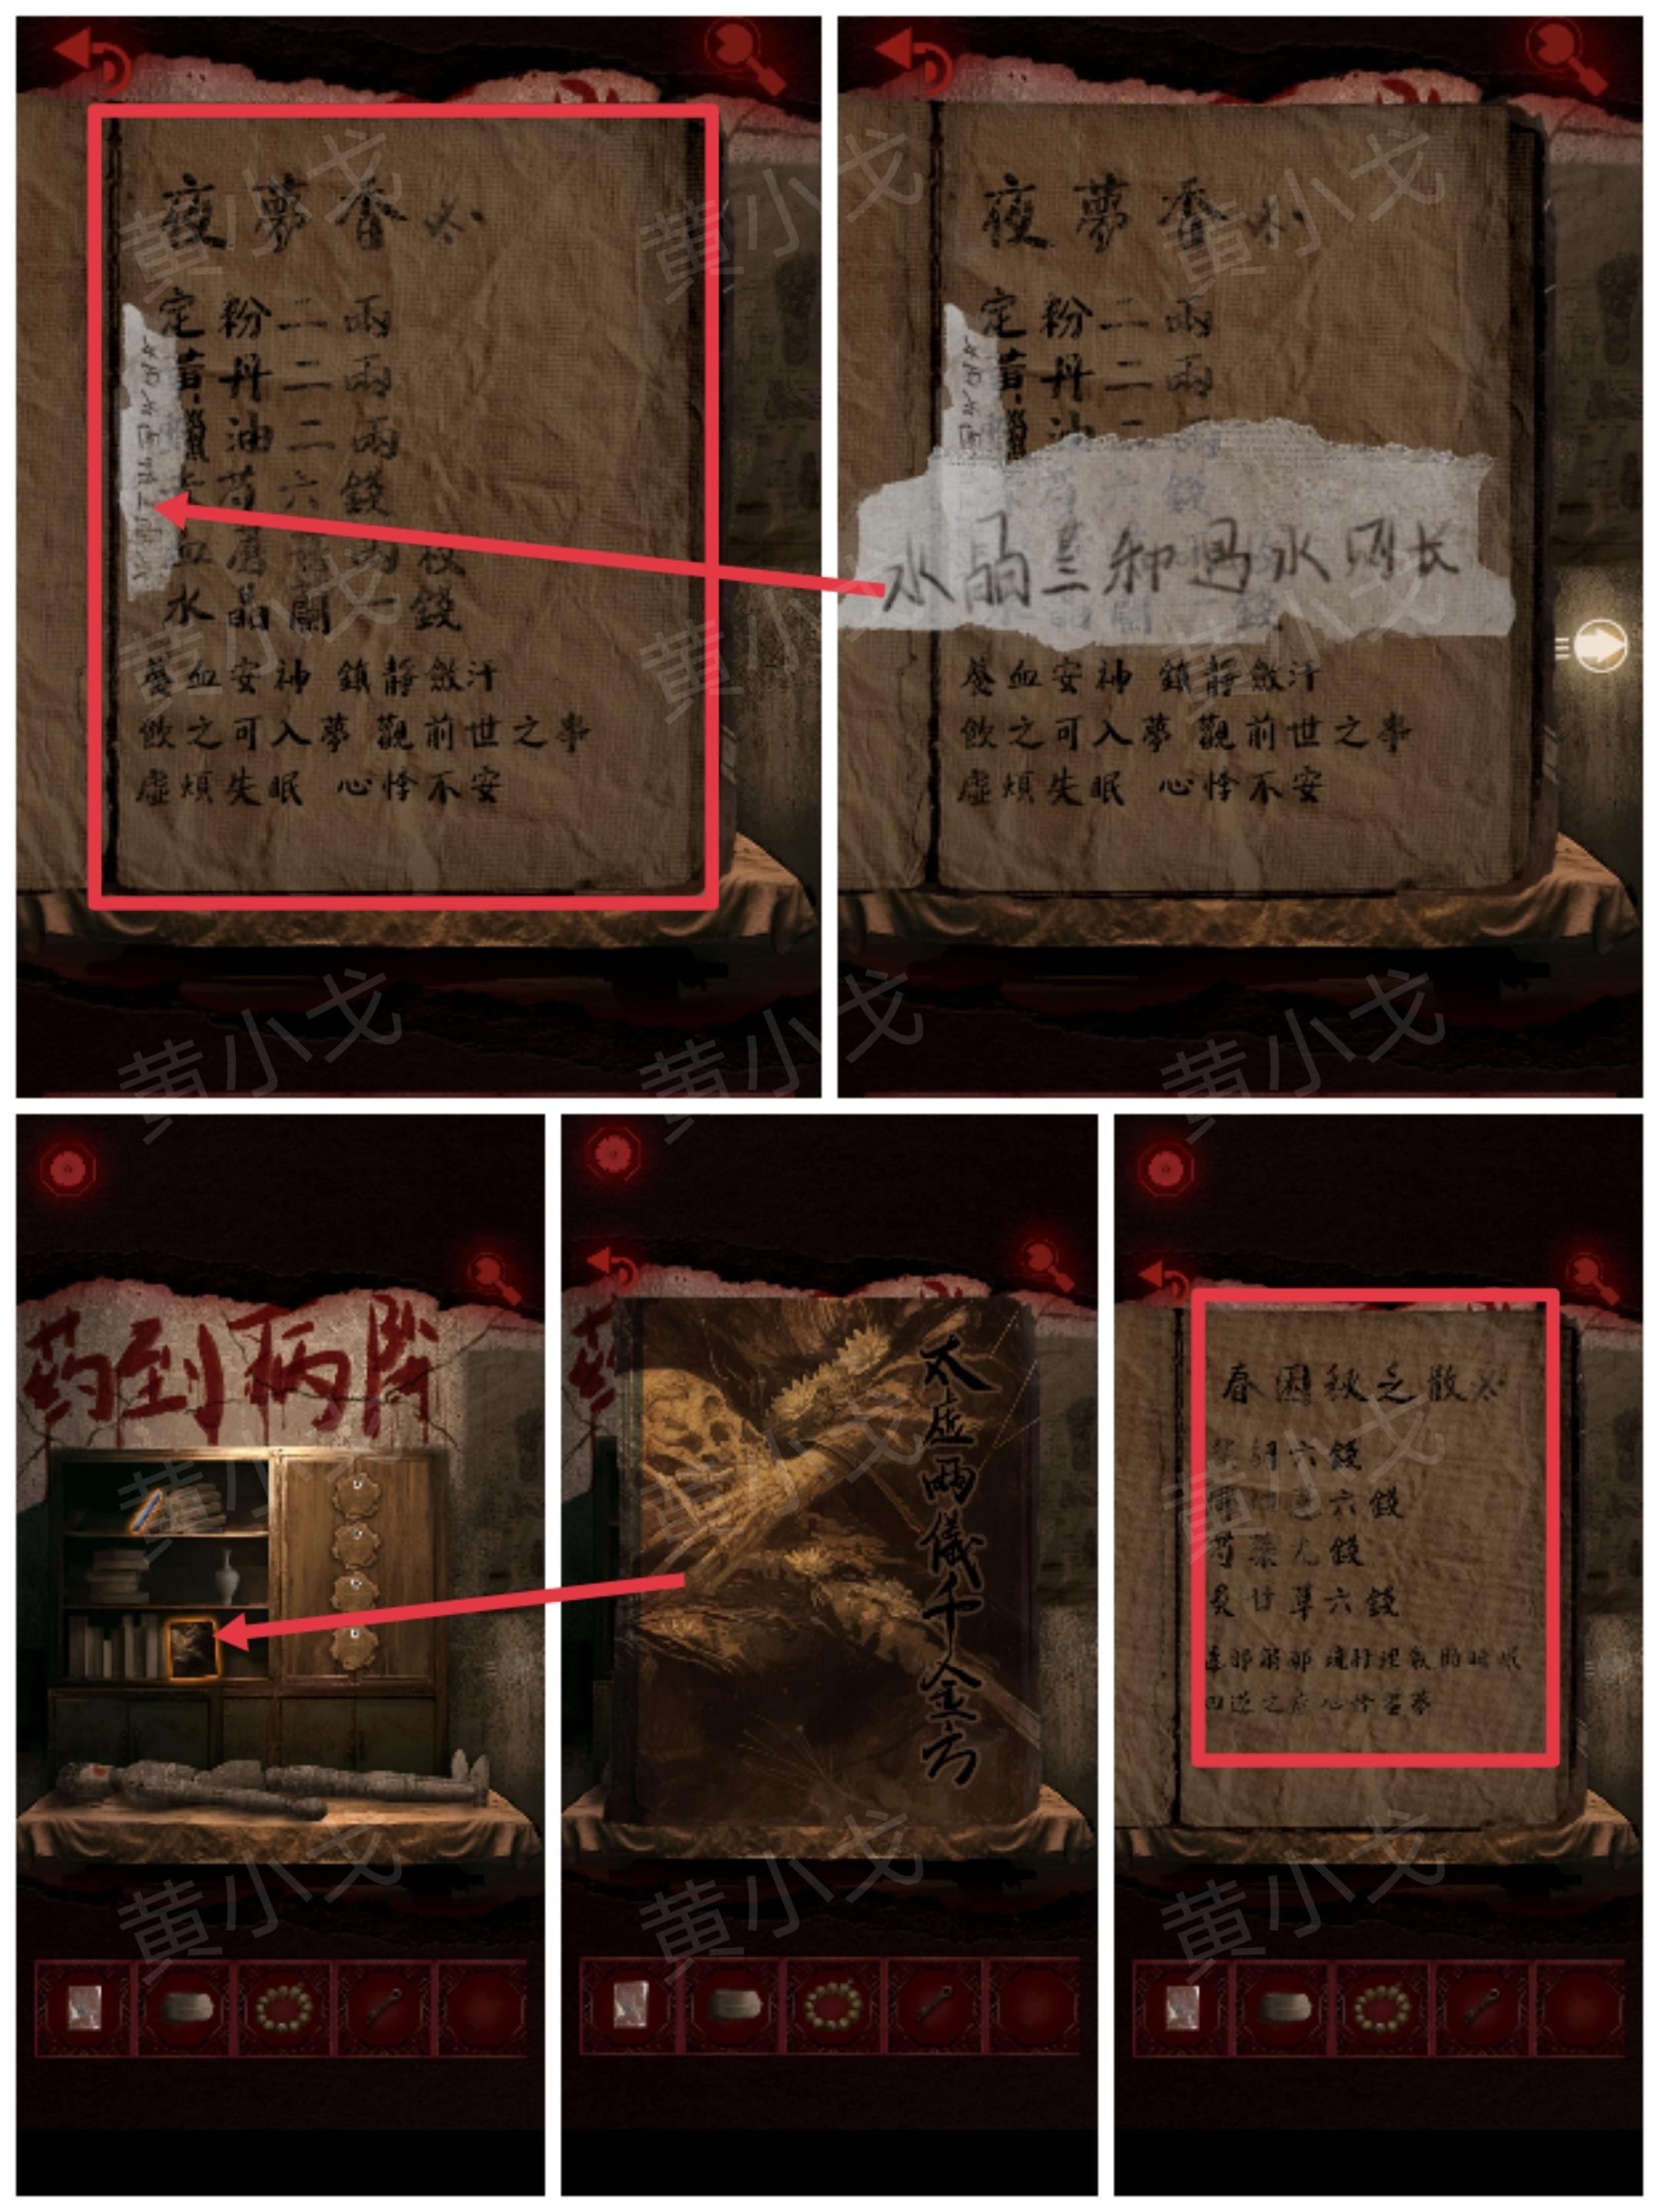 夜夢香
定粉二兩
黃丹二兩
油二兩
六錢
水晶蘭一錢
養血安神 鎮靜斂汗
飲之可入夢 觀前世之事
虛煩失眠 心悸不安
夜夢香
定粉二兩
黃丹二兩
油二兩
水晶兰种遇水则长
養血安神 鎮靜斂汗
飲之可入夢 觀前世之事
虛煩失眠 心悸不安
药到病除
太虛兩儀千金方
春困秋乏散
胡六錢
六錢
藥九錢
炙甘草六錢
黄小戈